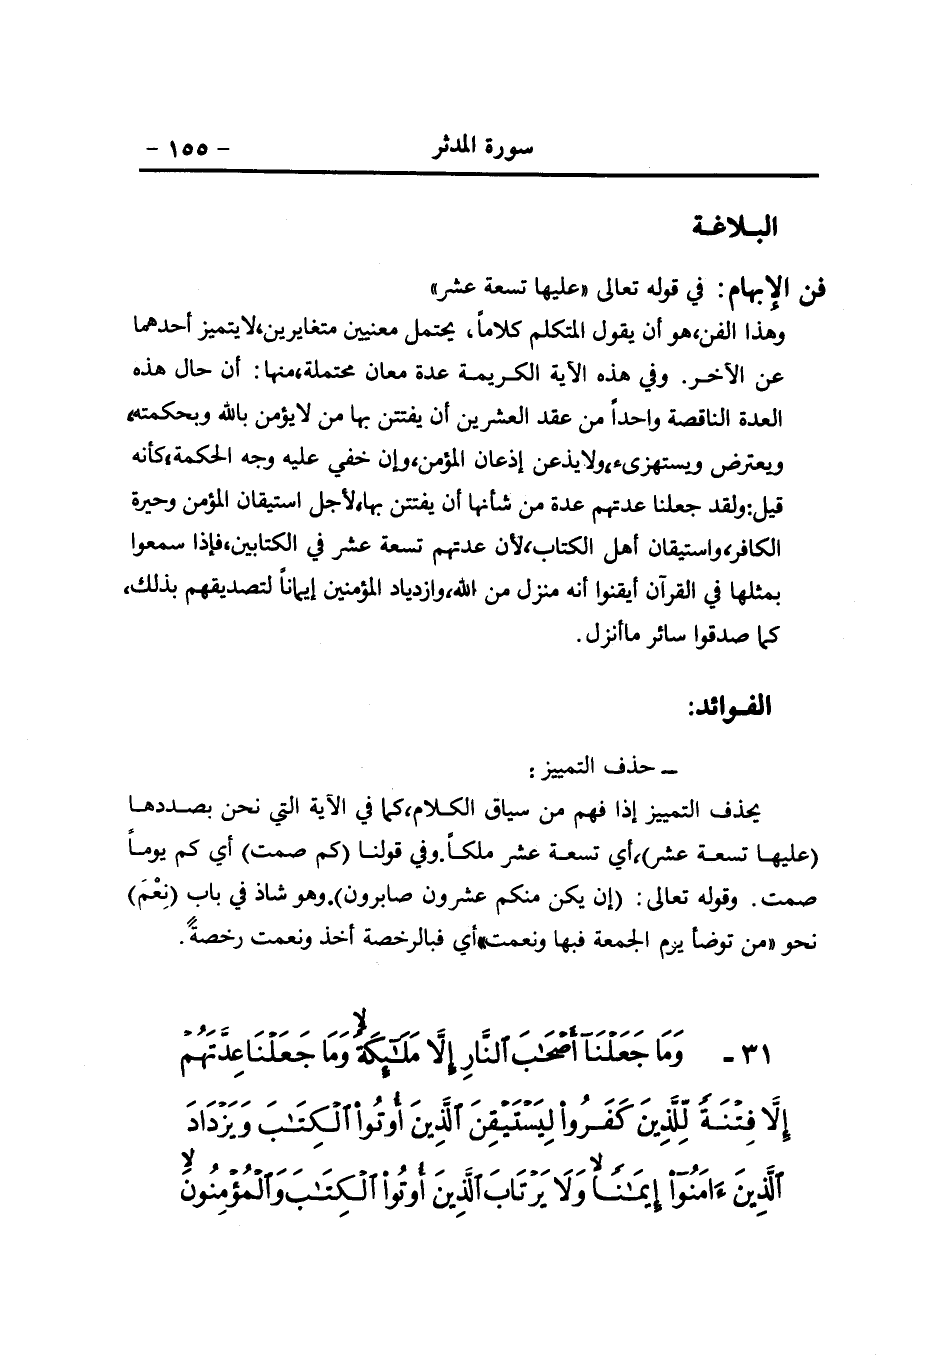 سورة المدثر - ١٥٥ -
البـلاغـة
فن الإبهام: في قوله تعالى «عليها تسعة عشر»
وهذا الفن،هو أن يقول المتكلم كلاماً، يحتمل معنيين متغايرين،لايتميز أحدهما
عن الآخـر. وفي هذه الآية الكـريمـة عدة معان محتملة،منها: أن حال هذه
العدة الناقصة واحداً من عقد العشرين أن يفتتن بها من لايؤمن بالله وبحكمته،
ويعترض ويستهزىء،ولايذعن إذعان المؤمن،وإن خفي عليه وجه الحكمة،كأنه
قيل:ولقد جعلنا عدتهم عدة من شأنها أن يفتتن بها،لأجل استيقان المؤمن وحيرة
الكافر،واستيقان أهل الكتاب،لأن عدتهم تسعة عشر في الكتابين،فإذا سمعوا
بمثلها في القرآن أيقنوا أنه منزل من الله،وازدياد المؤمنين إيماناً لتصديقهم بذلك،
كما صدقوا سائر ماأنزل.
الفـوائد:
ـ حذف التمييز :
يحذف التمييز إذا فهم من سياق الكـلام،كما في الآية التي نحن بصـددهـا
(عليهـا تسعـة عشر)،أي تسعـة عشر ملكـاً.وفي قولنـا (كم صمت) أي كم يومـاً
صمت. وقوله تعالى: (إن يكن منكم عشرون صابرون).وهو شاذ في باب (نِعْمَ)
نحو «من توضأ يزم الجمعة فبها ونعمت»أي فبالرخصة أخذ ونعمت رخصةً.
٣١ - وَمَا جَعَلْنَآ أَصْحَٰبَ ٱلنَّارِ إِلَّا مَلَٰٓئِكَةًۙ وَمَا جَعَلْنَا عِدَّتَهُمْ
إِلَّا فِتْنَةً لِّلَّذِينَ كَفَرُوا۟ لِيَسْتَيْقِنَ ٱلَّذِينَ أُوتُوا۟ ٱلْكِتَٰبَ وَيَزْدَادَ
ٱلَّذِينَ ءَامَنُوٓا۟ إِيمَٰنًاۙ وَلَا يَرْتَابَ ٱلَّذِينَ أُوتُوا۟ ٱلْكِتَٰبَ وَٱلْمُؤْمِنُونَۙ